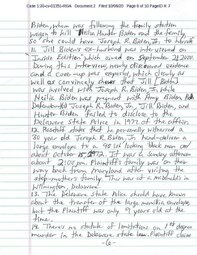 Case 1:20-cv-01351-RGA Document 2 Filed 10/06/20 Page 6 of 10 PageID #: 7
Biden, whom was following the family station
wagon to kill Neilia Hunter Biden and the family,
so she could have Joseph R. Biden, Jr. to herself.
11. Jill Biden's ex-husband was interviewed on
Inside Edition which aired on September 21, 2020.
During this interview, newly discovered evidence
and a cover-up was exposed, which clearly as
well as convincingly shows that Jill Biden
was involved with Joseph R. Biden, Jr. while
Neilia Biden was pregnant with Amy Biden.
Defendants Joseph R. Biden, Jr., Jill Biden, and
Hunter Biden failed to disclose to the
Delaware State Police in 1972 of the affair.
12. Plaintiff states that he personally witnessed a
30 year old Joseph R. Biden, Jr. hand-deliver a
large envelope to a 40 ish looking black man on
about October 15, 1972. It was a Sunday afternoon
about 2:00 pm. Plaintiff's family was on their
way back from Maryland after visiting the
step-mother's family. This was at a McDonald's in
Wilmington, Delaware.
13. The Delaware State Police should have known
about the transfer of the large manilla envelope,
but the Plaintiff was only 9 years old at the
time.
14. There's no statute of limitations on 1st degree
murder in the Delaware state law. Plaintiff claims
-6-